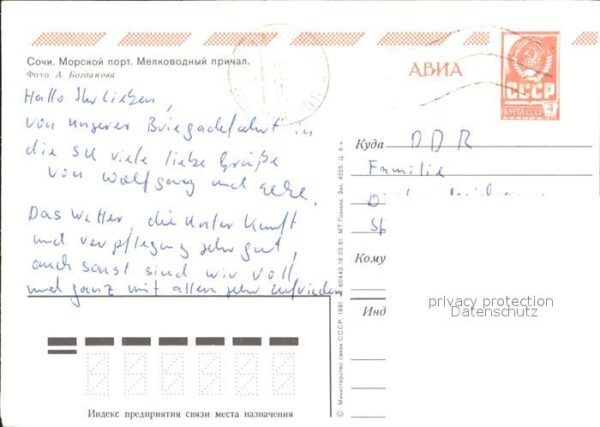 Сочи. Морской порт. Мелководный причал.
Фото А. Богданова
АВИА
СССР
ПОЧТА СССР
4
Hallo Ihr lieben,
von unserer Brigadefahrt in
die SU viele liebe Grüße
von Wolfgang und
Das Wetter, die Unterkunft
und verpflegung sehr gut,
auch sonst sind wir voll
und ganz mit allem sehr zufrieden
Куда DDR
Familie
Кому
Инд
privacy protection
Datenschutz
Индекс предприятия связи места назначения
© Министерство связи СССР. 1981 60443 18.05.81. МТ Гознака. Зак. 4205. Ц. 6 к.